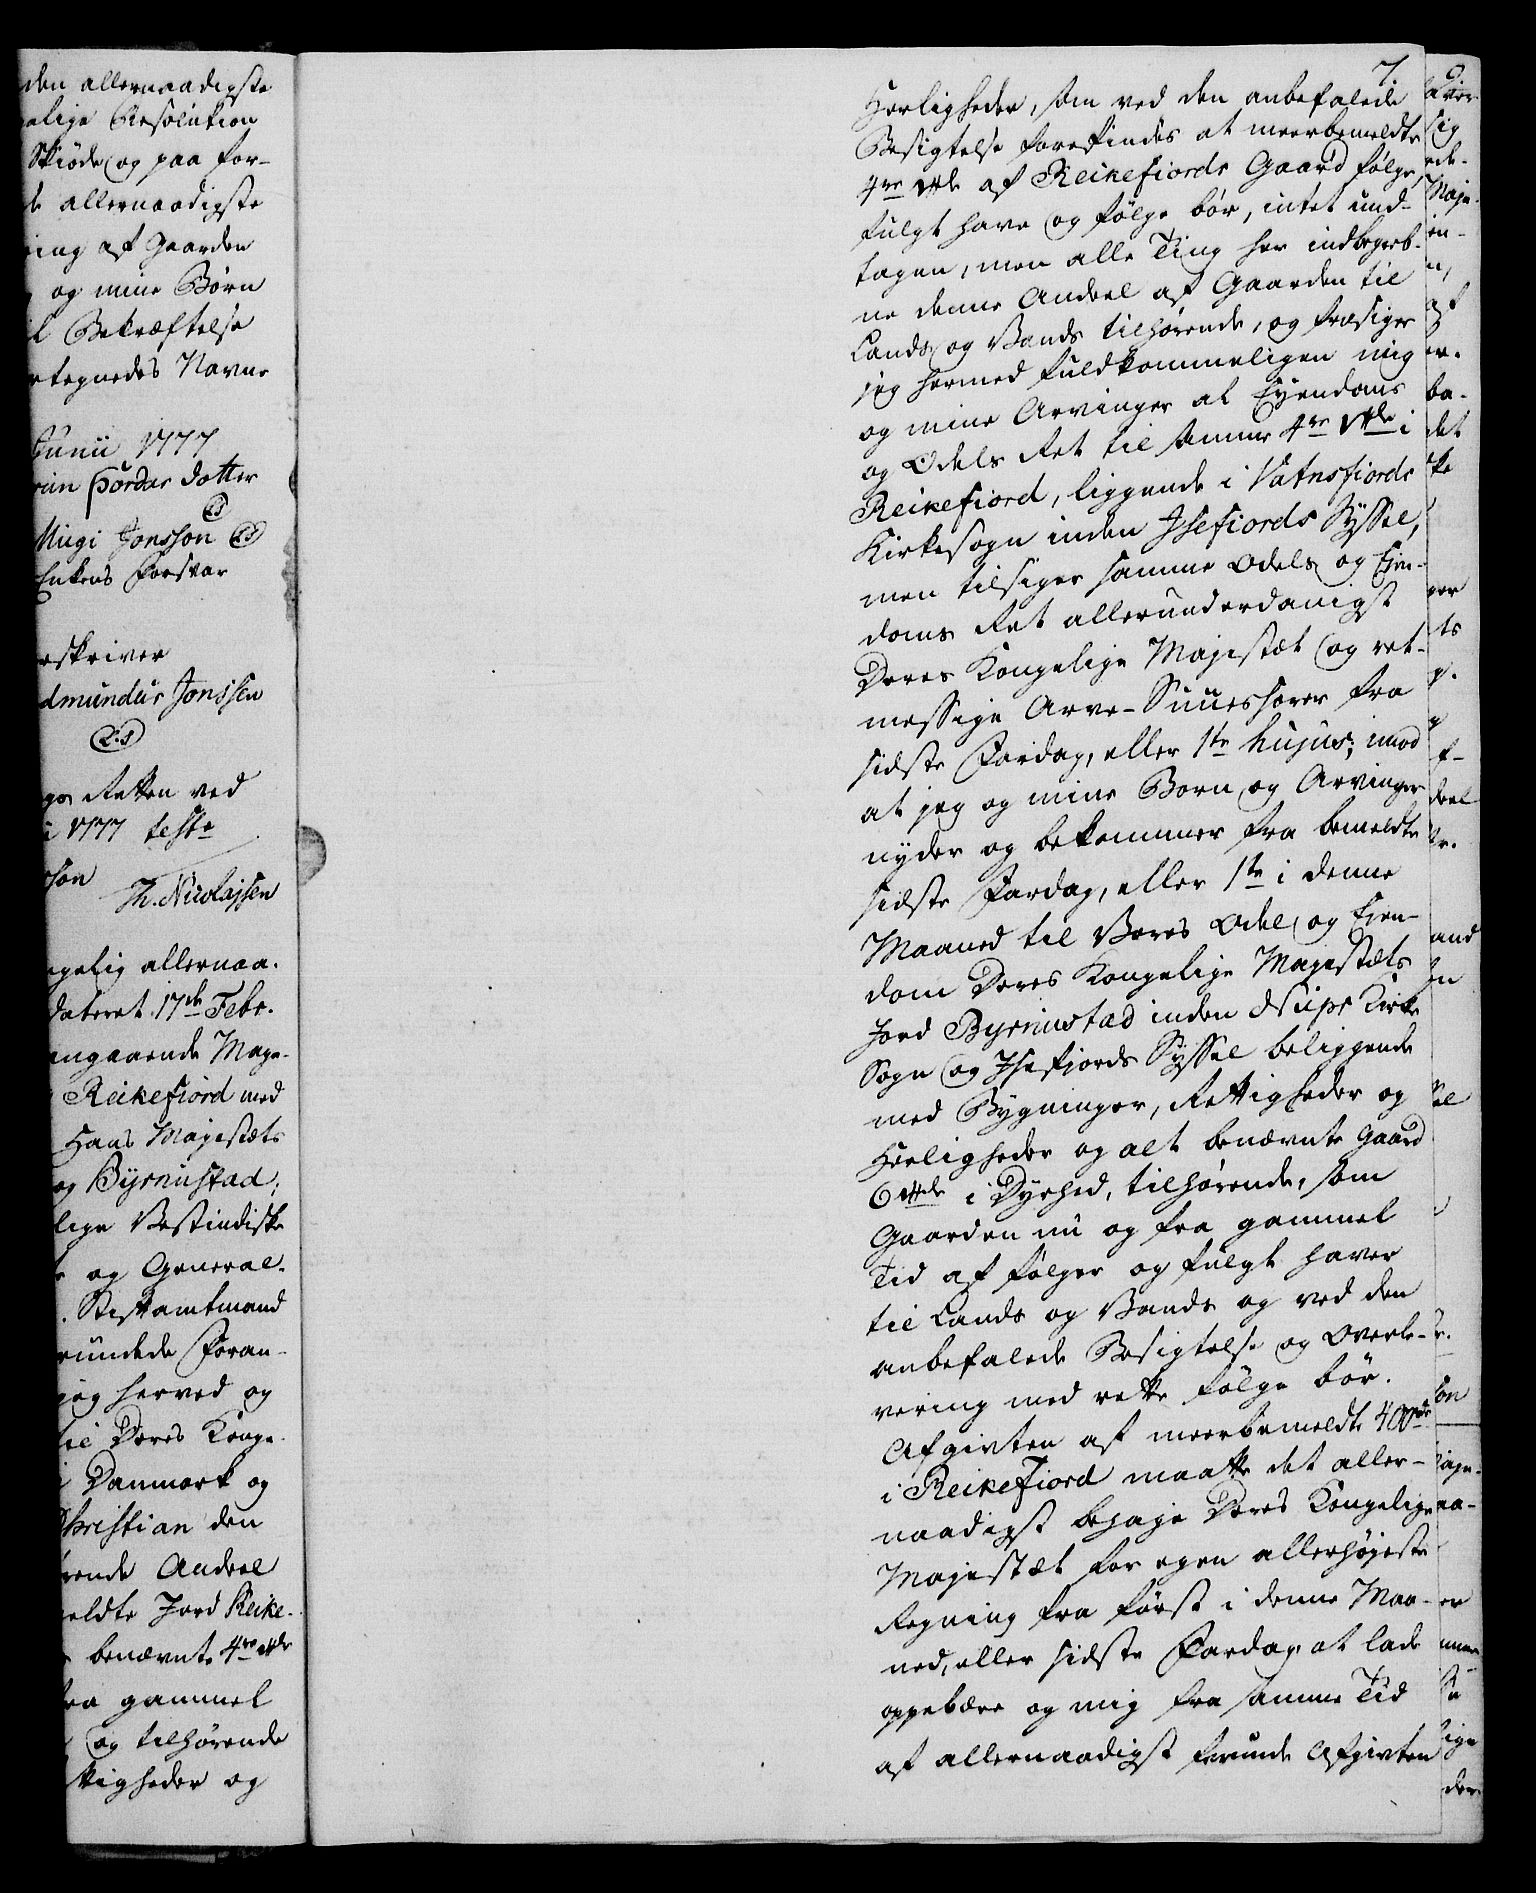 den allernaadigste
elige Resolution
Skiøde og paa for-
de allernaadigste
ring af Gaarden
og mine Børn
il Bekræftelse
rtegnedes Navne
Junii 1777
run Þordar dotter
Mugi Jonsson
Enkens Forsvar
rskriver
dmundur Jonssen
L.S
gs Retten ved
i 1777 teste
son
Th. Nicolajsen
ngelig allernaa-
dateret 17de Febr.
angaaende Mage-
Reikefiord med
Hans Majestæts
og Byrnustad;
lige Vestindiske
og General-
Stiftamtmand
rundede Foran-
jeg herved og
til Deres Konge-
i Danmark og
Christian den
rende Andeel
eldte Jord Reike-
benævnte 4re
fra gammel
og tilhørende
tigheder og
7.
Herligheder, som ved den anbefalede
Besigtelse forefindes at meerbemeldte
4re af Reikefiords Gaard følge,
fulgt have og følge bør, intet und-
tagen, men alle Ting her indbegreb-
ne denne Andeel af Gaarden til
Lands og Vands tilhørende, og frasiger
jeg hermed fuldkommeligen mig
og mine Arvinger al Eyendoms
og Odels Ret til samme 4re i
Reikefiord, liggende i Vatnsfiords
Kirkesogn inden Isefiords Syssel,
men tilsiger samme Odels og Ejen-
doms Ret allerunderdanigst
Deres Kongelige Majestæt og ret-
messige Arve-Suuessorer fra
sidste Fardag, eller 1te hujus; imod
at jeg og mine Børn og Arvinger
nyder og bekommer fra bemeldte
sidste Fardag, eller 1te i denne
Maaned til Vores Odel og Ejen-
dom Deres Kongelige Majestæts
Jord Byrnustad inden Nups Kirke
Sogn og Isefjords Syssel beliggende
med Bygninger, Rettigheder og
Herligheder og alt benævnte Gaard
6 i Dyrhed, tilhørende, som
Gaarden nu og fra gammel
Tid af følger og fulgt haver
til Lands og Vands og ved den
anbefalede Besigtelse og Overle-
vering med rette følge bør.
Afgivten af meerbemeldte 4
i Reikefiord maatte det aller-
naadigst behage Deres Kongelige
Majestæt for egen allerhøjeste
Regning fra først i denne Maa-
ned, eller sidste Fardag at lade
oppebære og mig fra samme Tid
af allernaadigst forunde Afgivten